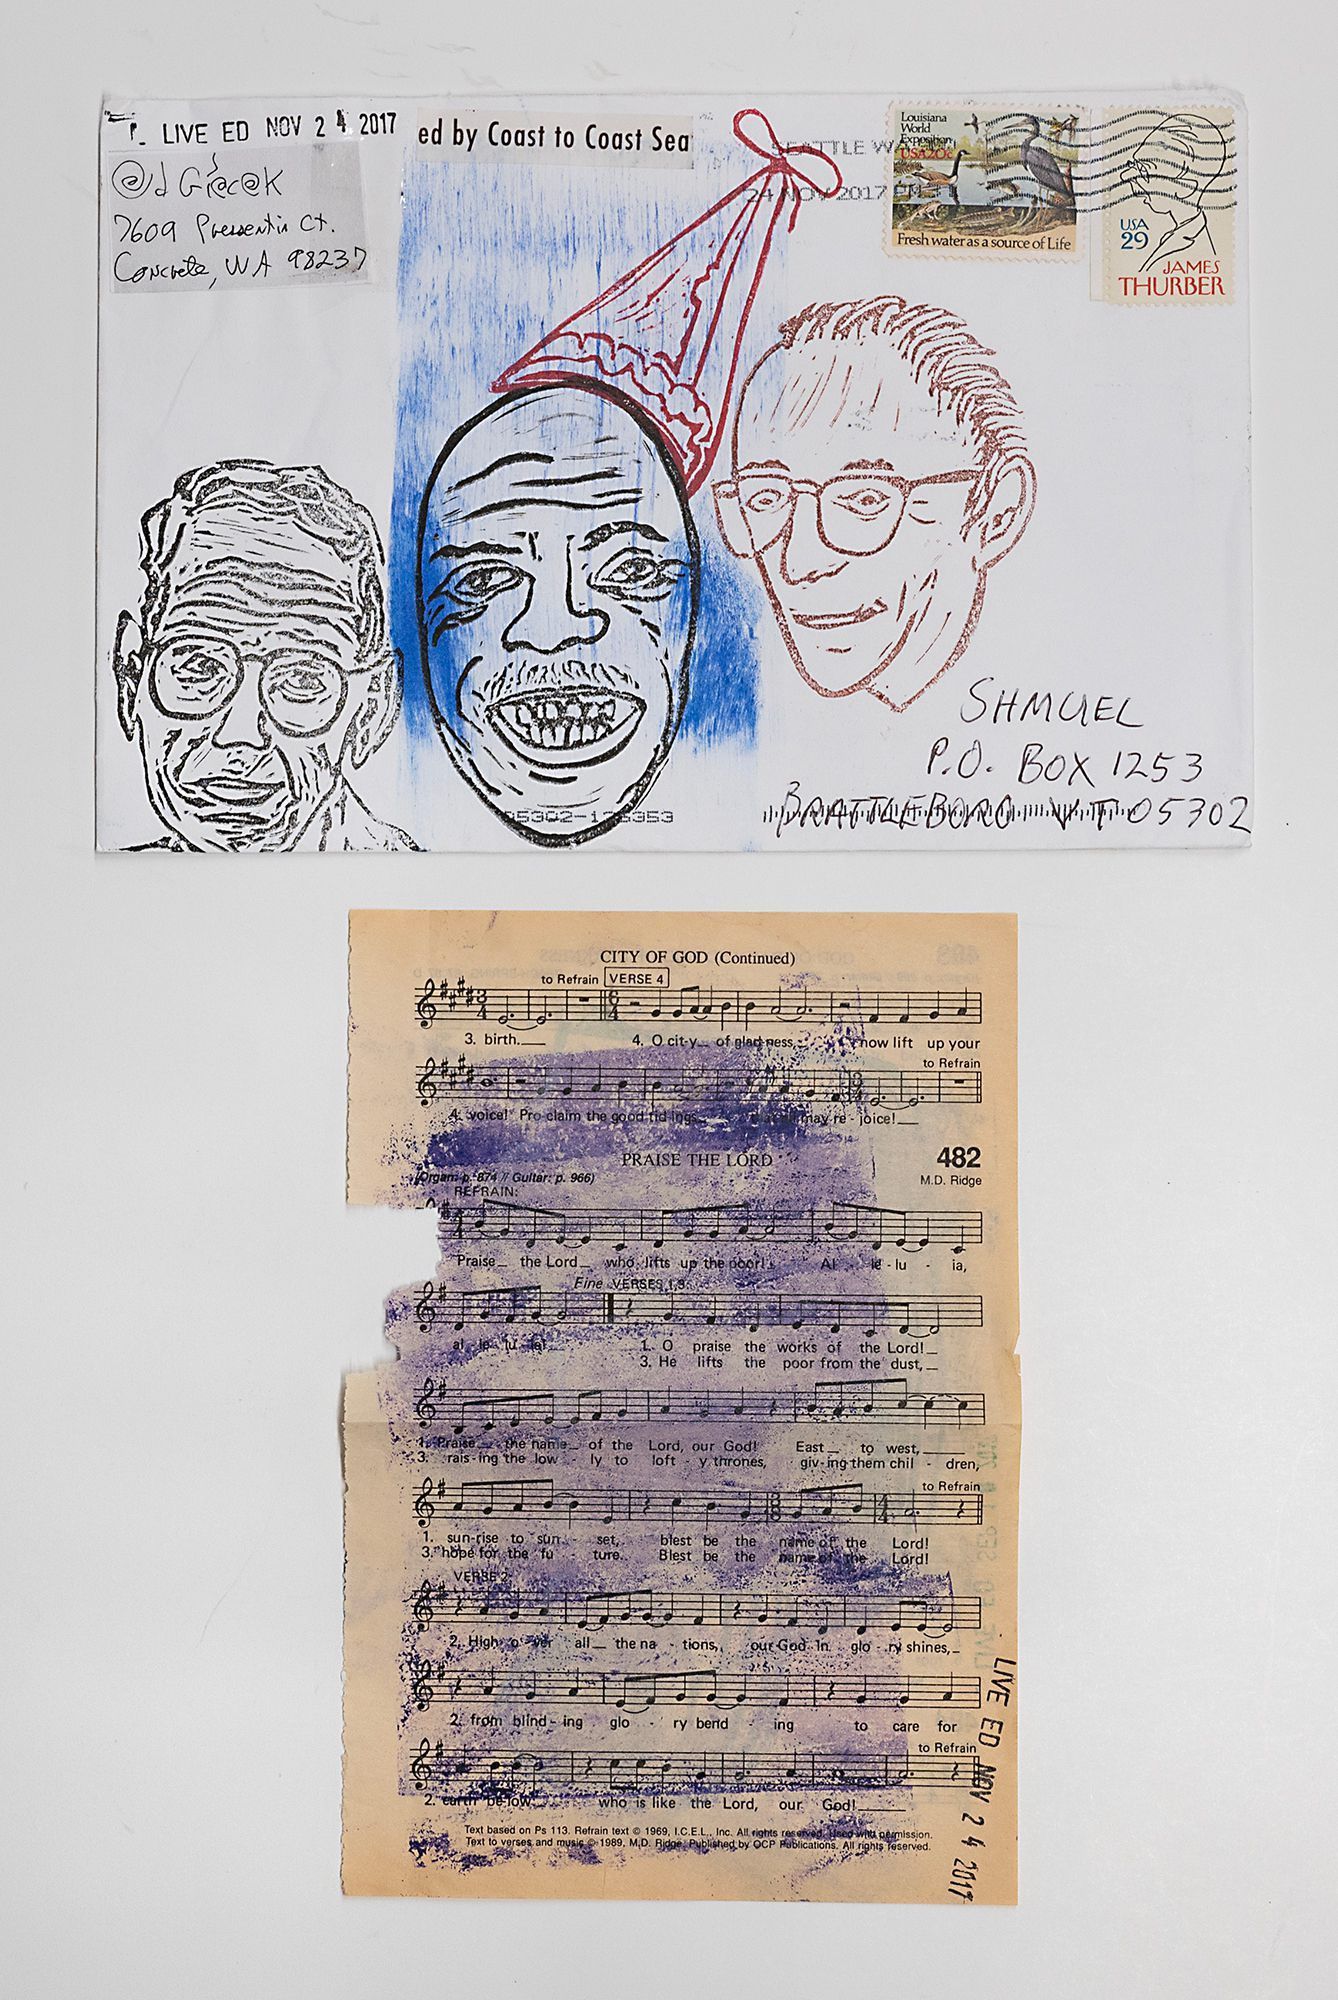 LIVE ED NOV 24 2017
ed by Coast to Coast Sea
7609 Pressentin Ct.
Concrete, WA 98237
SEATTLE WA
24 NOV 2017 PM
Louisiana
World
Exposition
USA 20c
Fresh water as a source of Life
USA
29
JAMES
THURBER
SHMUEL
P.O. BOX 1253
BRATTLEBORO VT 05302
CITY OF GOD (Continued)
to Refrain VERSE 4
3. birth.___ 4. O cit-y_ of glad-ness,_ now lift up your
to Refrain
4. voice! Pro-claim the good tid-ings_ that all may re-joice!__
PRAISE THE LORD 482
(Organ: p. 874 // Guitar: p. 966) M.D. Ridge
REFRAIN:
Praise_ the Lord_ who lifts up the poor!_ Al - le - lu - ia,
Fine VERSES 1,3:
al - le - lu - ia! 1. O praise the works of the Lord!_
3. He lifts the poor from the dust,_
1. Praise_ the name_ of the Lord, our God! East_ to west,____
3. rais-ing the low - ly to loft - y thrones, giv-ing them chil - dren,
to Refrain
1. sun-rise to sun - set, blest be the name of the Lord!
3. hope for the fu - ture. Blest be the name of the Lord!
VERSE 2:
2. High o - ver all_ the na - tions, our God in glo - ry shines,_
2. from blind-ing glo - ry bend - ing to care for
to Refrain
2. earth be-low,_ who is like the Lord, our God!____
Text based on Ps 113. Refrain text © 1969, I.C.E.L., Inc. All rights reserved. Used with permission.
Text to verses and music © 1989, M.D. Ridge. Published by OCP Publications. All rights reserved.
LIVE ED NOV 24 2017